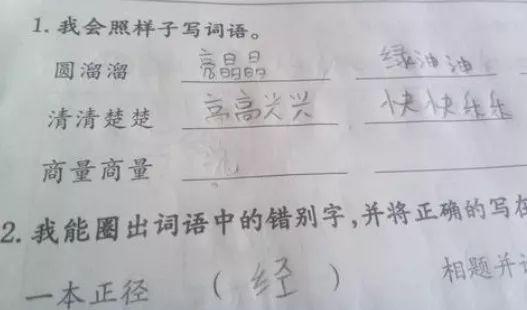 1. 我会照样子写词语。
圆溜溜 亮晶晶 绿油油
清清楚楚 高高兴兴 快快乐乐
商量商量
2. 我能圈出词语中的错别字,并将正确的写在
一本正径 ( 经 ) 相题并论